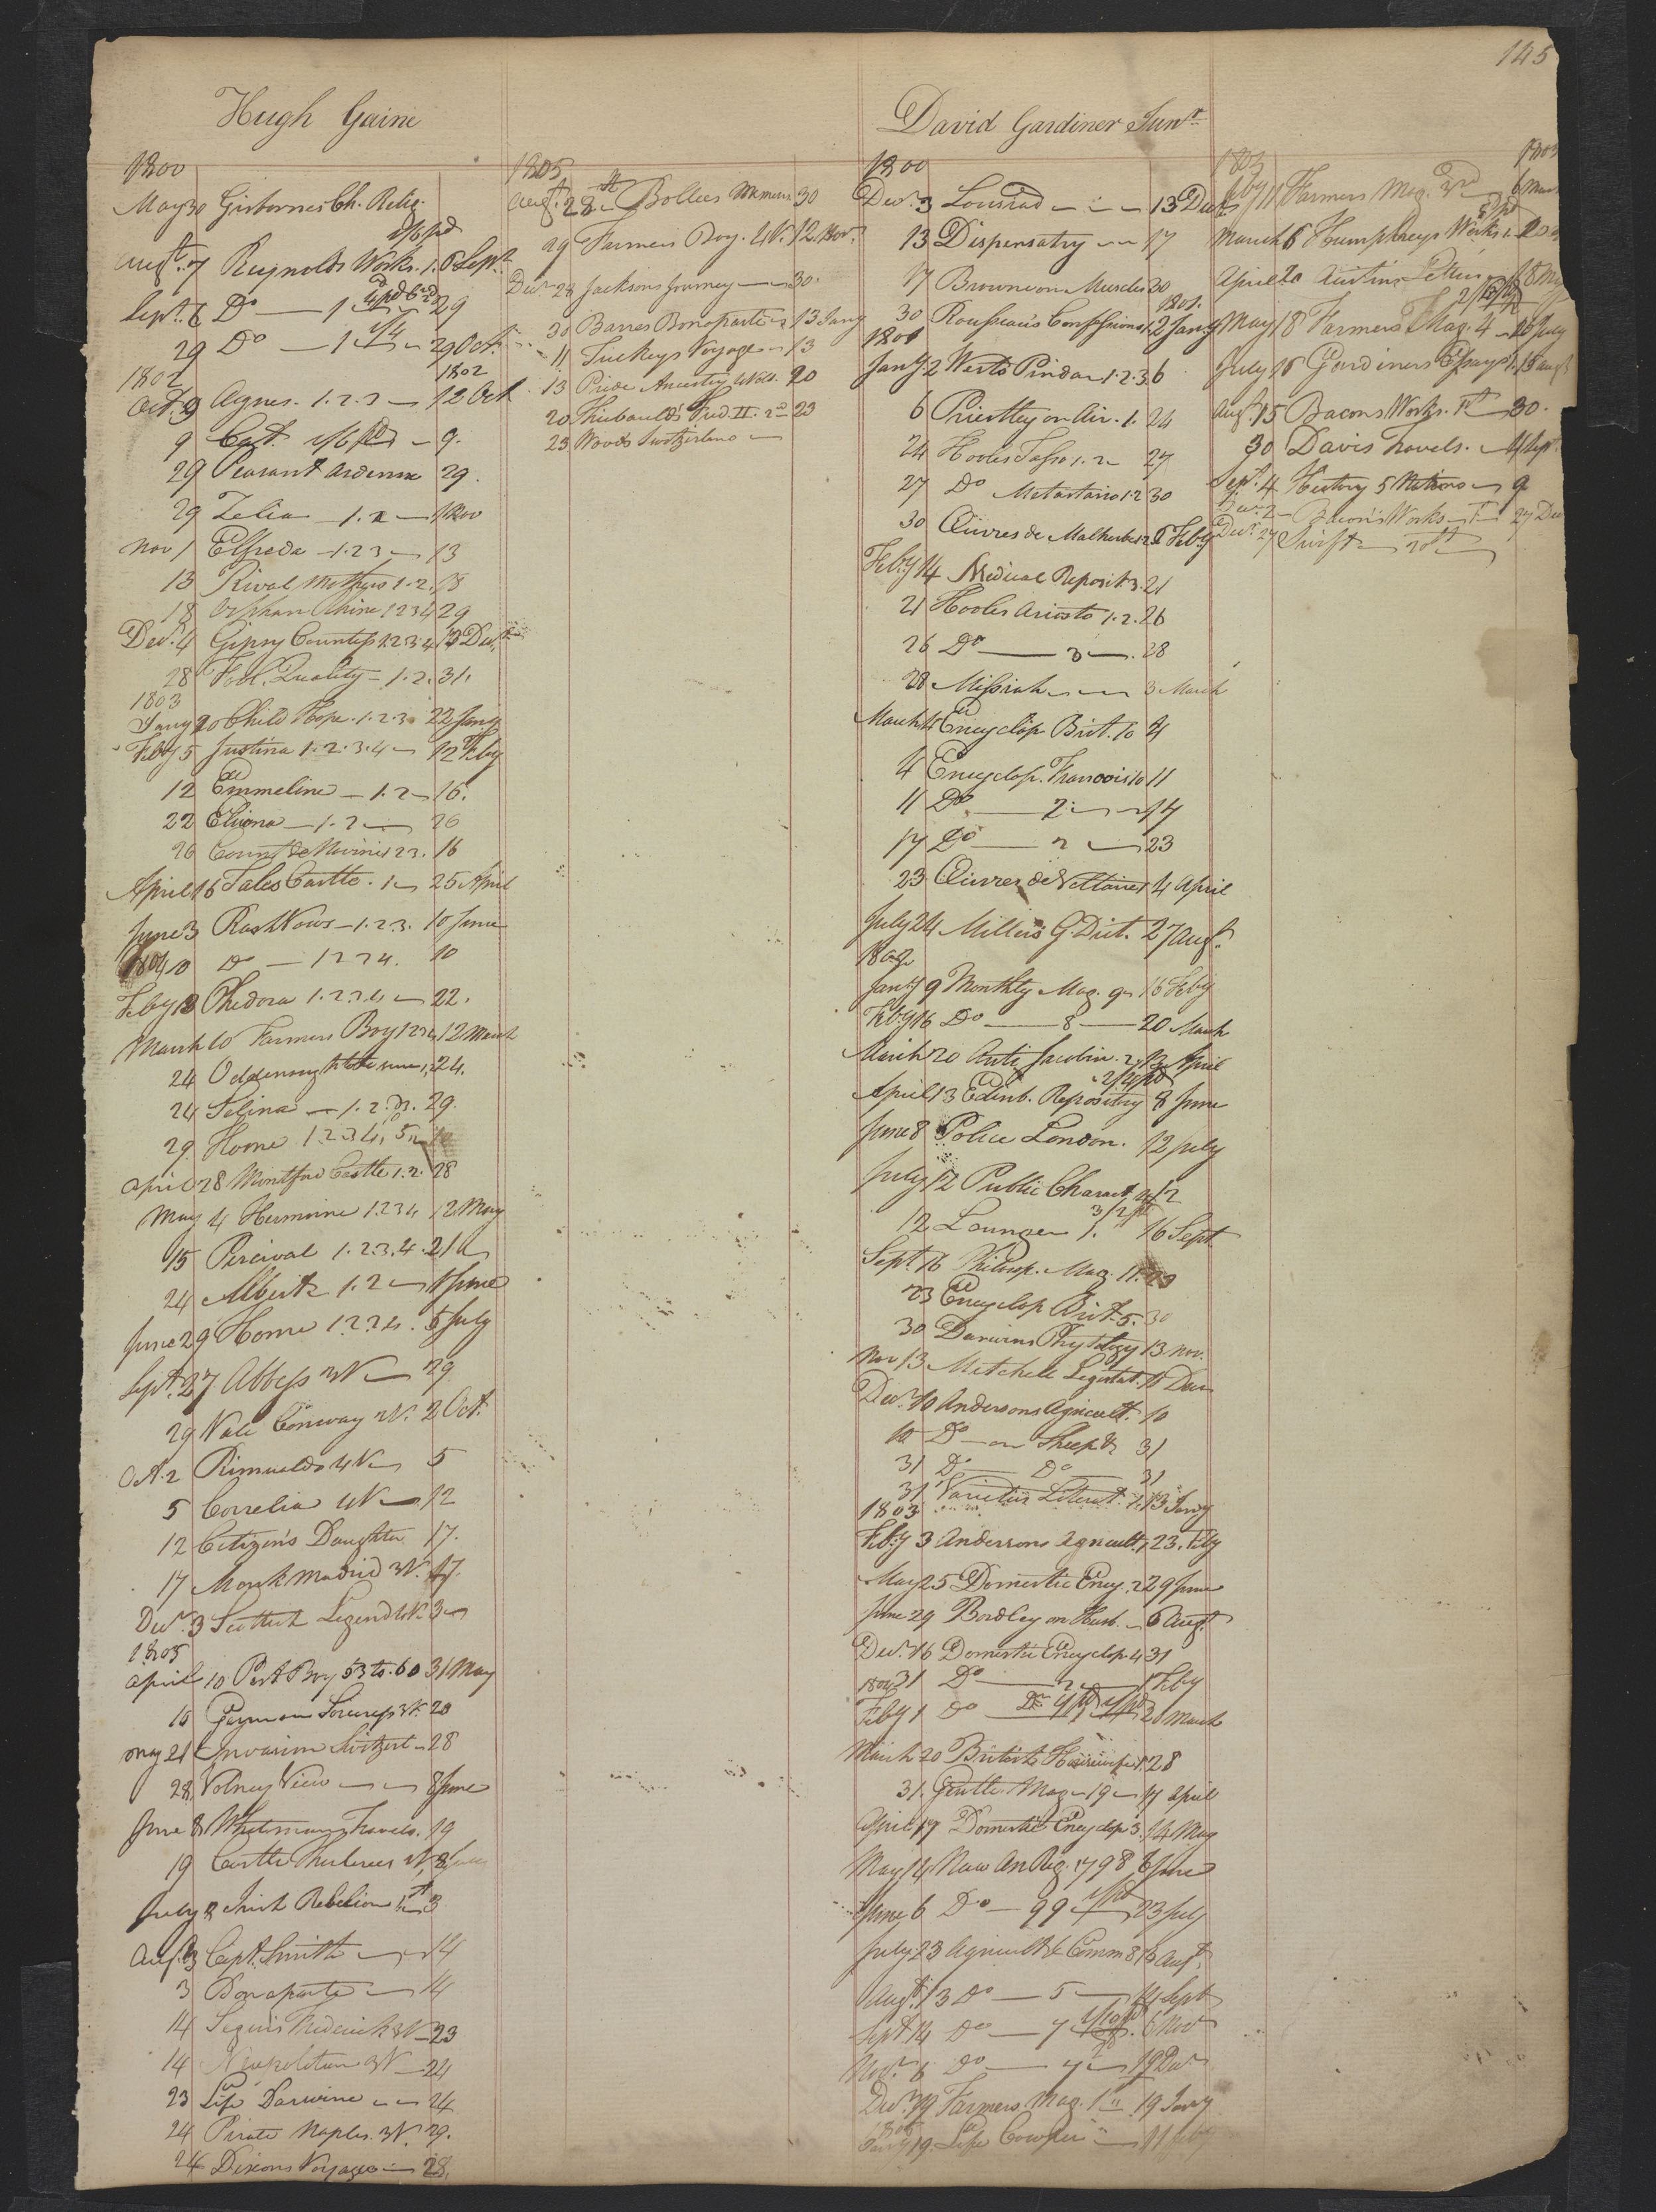 145
Hugh Gaine
1800
May 30 Gisbornes Ch. Relig.
1/6 pd
Augt. 7 Reynolds Works. 1. 6 Sept.
Sept. 6 Do — 1 29
29 Do — 1 1/4 29 Oct.
1802 1802
Oct. 9 Agnes. 1.2.3 — 12 Oct
9 Cast. 1/6 pd — 9.
29 Peasant Ardenne 29.
29 Zelia — 1.2 — 1 Nov
Nov 1 Elfreda — 1.2 3 — 13
13 Rival Mothers 1.2. 18
18 Orphan Rhine 1 2 3 4 29
Decr. 4 Gipsy Countess 1.2.3.4. Decr.
28 Fool. Quality — 1.2. 31.
1803
Jany 20 Child Hope. 1.2.3. 22 Jany
Feby 5 Justina 1.2.3.4 — 12 Feby
12 Emmeline — 1.2 — 16.
22 — 1.2 — 26
26 Count de 1 2 3. 16
April 16 Tales Castle. 1 — 25 April
June 3 Rash Vows — 1.2.3. 10 June
10 Do — 1 2 3 4. 10
1804
Feby 13 Phedora 1.2.3.4 — 22.
March 10 Farmers Boy 1 2 3 4 12 March
24 24.
24 Selina — 1.2.3. 29.
29 Home 1.2.3.4, 5
April 28 Montford Castle 1.2. 28
May 4 Hermione 1.2.3.4 12 May
15 Percival 1.2.3.4. 21
24 Albert 1.2 — 1 June
June 29 Home 1.2.3.4. 5 July
Sept. 27 Abbess 3 V — 29
29 Vale Conway 2 V. 2 Oct.
Oct. 2 Rimualdo 4 V — 5
5 Correlia 4 V — 12
12 Citizen's Daughter 17.
17 Monk Madrid 3 V. 17.
Decr. 3 Scottish Legend 4 V. 3
1805
April 10 Post Boy 53 to 60 31 May
15 German Sorceress 3 V. 20
May 21 Invasion Switzert — 28
28 Volney View — 8 June
June 8 Whitemans Travels. 19
19 Castle 2 V.
July 8 Irish Rebelion 1st 3
Augt. 3 Capt. Smith — 14
3 Bonaparte — 14
14 Seguirs Frederick 3 V — 23
14 Neapolitan 3 V — 24
23 Life Darwine — 24
24 Pirate Naples 3 V. 29.
24 Dixons Voyages — 28.
1805
Augt. 28 Bellees 30
29 Farmers Boy. 4 V. 12 Novr.
Decr 28 Jacksons Journey — 30.
30 Barres Bonaparte 13 Jany
11 Tuckeys Voyage — 13
13 Pride Ancestry 4 Vols. 20
20 Thiebaults Fred. II. 2d 23
23 Woods Switzerland —
David Gardiner Junr.
1800
Decr. 3 Lousiad — 13 Decr
13 Dispensatry — 17
17 Browne on Muscles 30
1801.
30 Rousseau's Confessions 1. 2 Jany
1801
Jany. 2 Works Pindar 1.2.3. 6
6 Priestley on Air. 1. 24
24 Hooles Tasso 1.2 — 27
27 Do Metastasio 1.2 30
30 Œuvres de Malherbe 12 Feby
Feby 14 Medical Reposit. 3. 21
21 Hooles Ariosto 1.2. 26
26 Do — 3 — 28
28 Missiah — 3 March
March 4 Encyclop. Brit. 10 4
4 Encyclop. Francois 10 11
11 Do — 2 — 17
17 Do — 2 — 23
23 Œuvres de Voltaire 1 4 April
July 24 Millers G. Dict. 27 Augt.
1802
Jany 9 Monthly Mag. 9 — 16 Feby
Feby 16 Do — 8 — 20 March
March 20 Anti Jacobin. 2. 13 April
2/4 pd
April 13 Edinb. Repository 8 June
June 8 Police London. 12 July
July 12 Public Charact. 4. 12
3/2 pd
12 Lounger 1. 16 Sept.
Sept. 16 Philosp. Mag. 11. 23
23 Encyclop Brit. 5. 30
30 Darwins Phytology 13 Nov.
Nov 13 Mitchell Legislat. 10 Decr
Decr. 10 Andersons Agricult. 10
10 Do — on Sheep & 31
31 Do — Do — 31
31 Varieties Literat. 1. 13 Jany
1803
Feby 3 Andersons Agricult. 23. Feby
May 25 Domestic Ency. 2 29 June
June 29 Bordley on Husb. — 6 Augt.
Decr. 16 Domestic Encyclop. 4 31
1804 31 Do — 2 — 1 Feby
Feby 1 Do 20 March
March 20 British 28
31. Gentle. Mag — 19 — 17 April
April 17 Domestic Encyclop 3. 14 May
May 14 New An Reg. 1798 6 June
June 6 Do — 99 1/ pd 23 July
July 23 Agricult. & Comm 8 13 Augt.
Augt. 13 Do — 5 — 14 Sept
Sept 14 Do — 7 1/10 pd. 6 Nov
Novr. 6 Do — 7 — 19 Decr
Decr. 19 Farmers Mag. 1st 19 Jany
1805
Jany 19 Life Cowper — 11 Feby
1805 1805
Feby 11 Farmers Mag. 3d — 6 March
March 6 Humphreys Works
April 20 Austins Letters 18 May
May 18 Farmers Mag. 4 — 16 July
July 16 Gardiners Essays 1. 15 Augt
Augt 15 Bacons Works. 1st — 30.
30 Davis Travels. — 4 Sept.
Sept. 4 History 5 Nations — 9
Decr. 2 — Bacons Works — 1st — 27 Dec
Decr. 27 Swift —